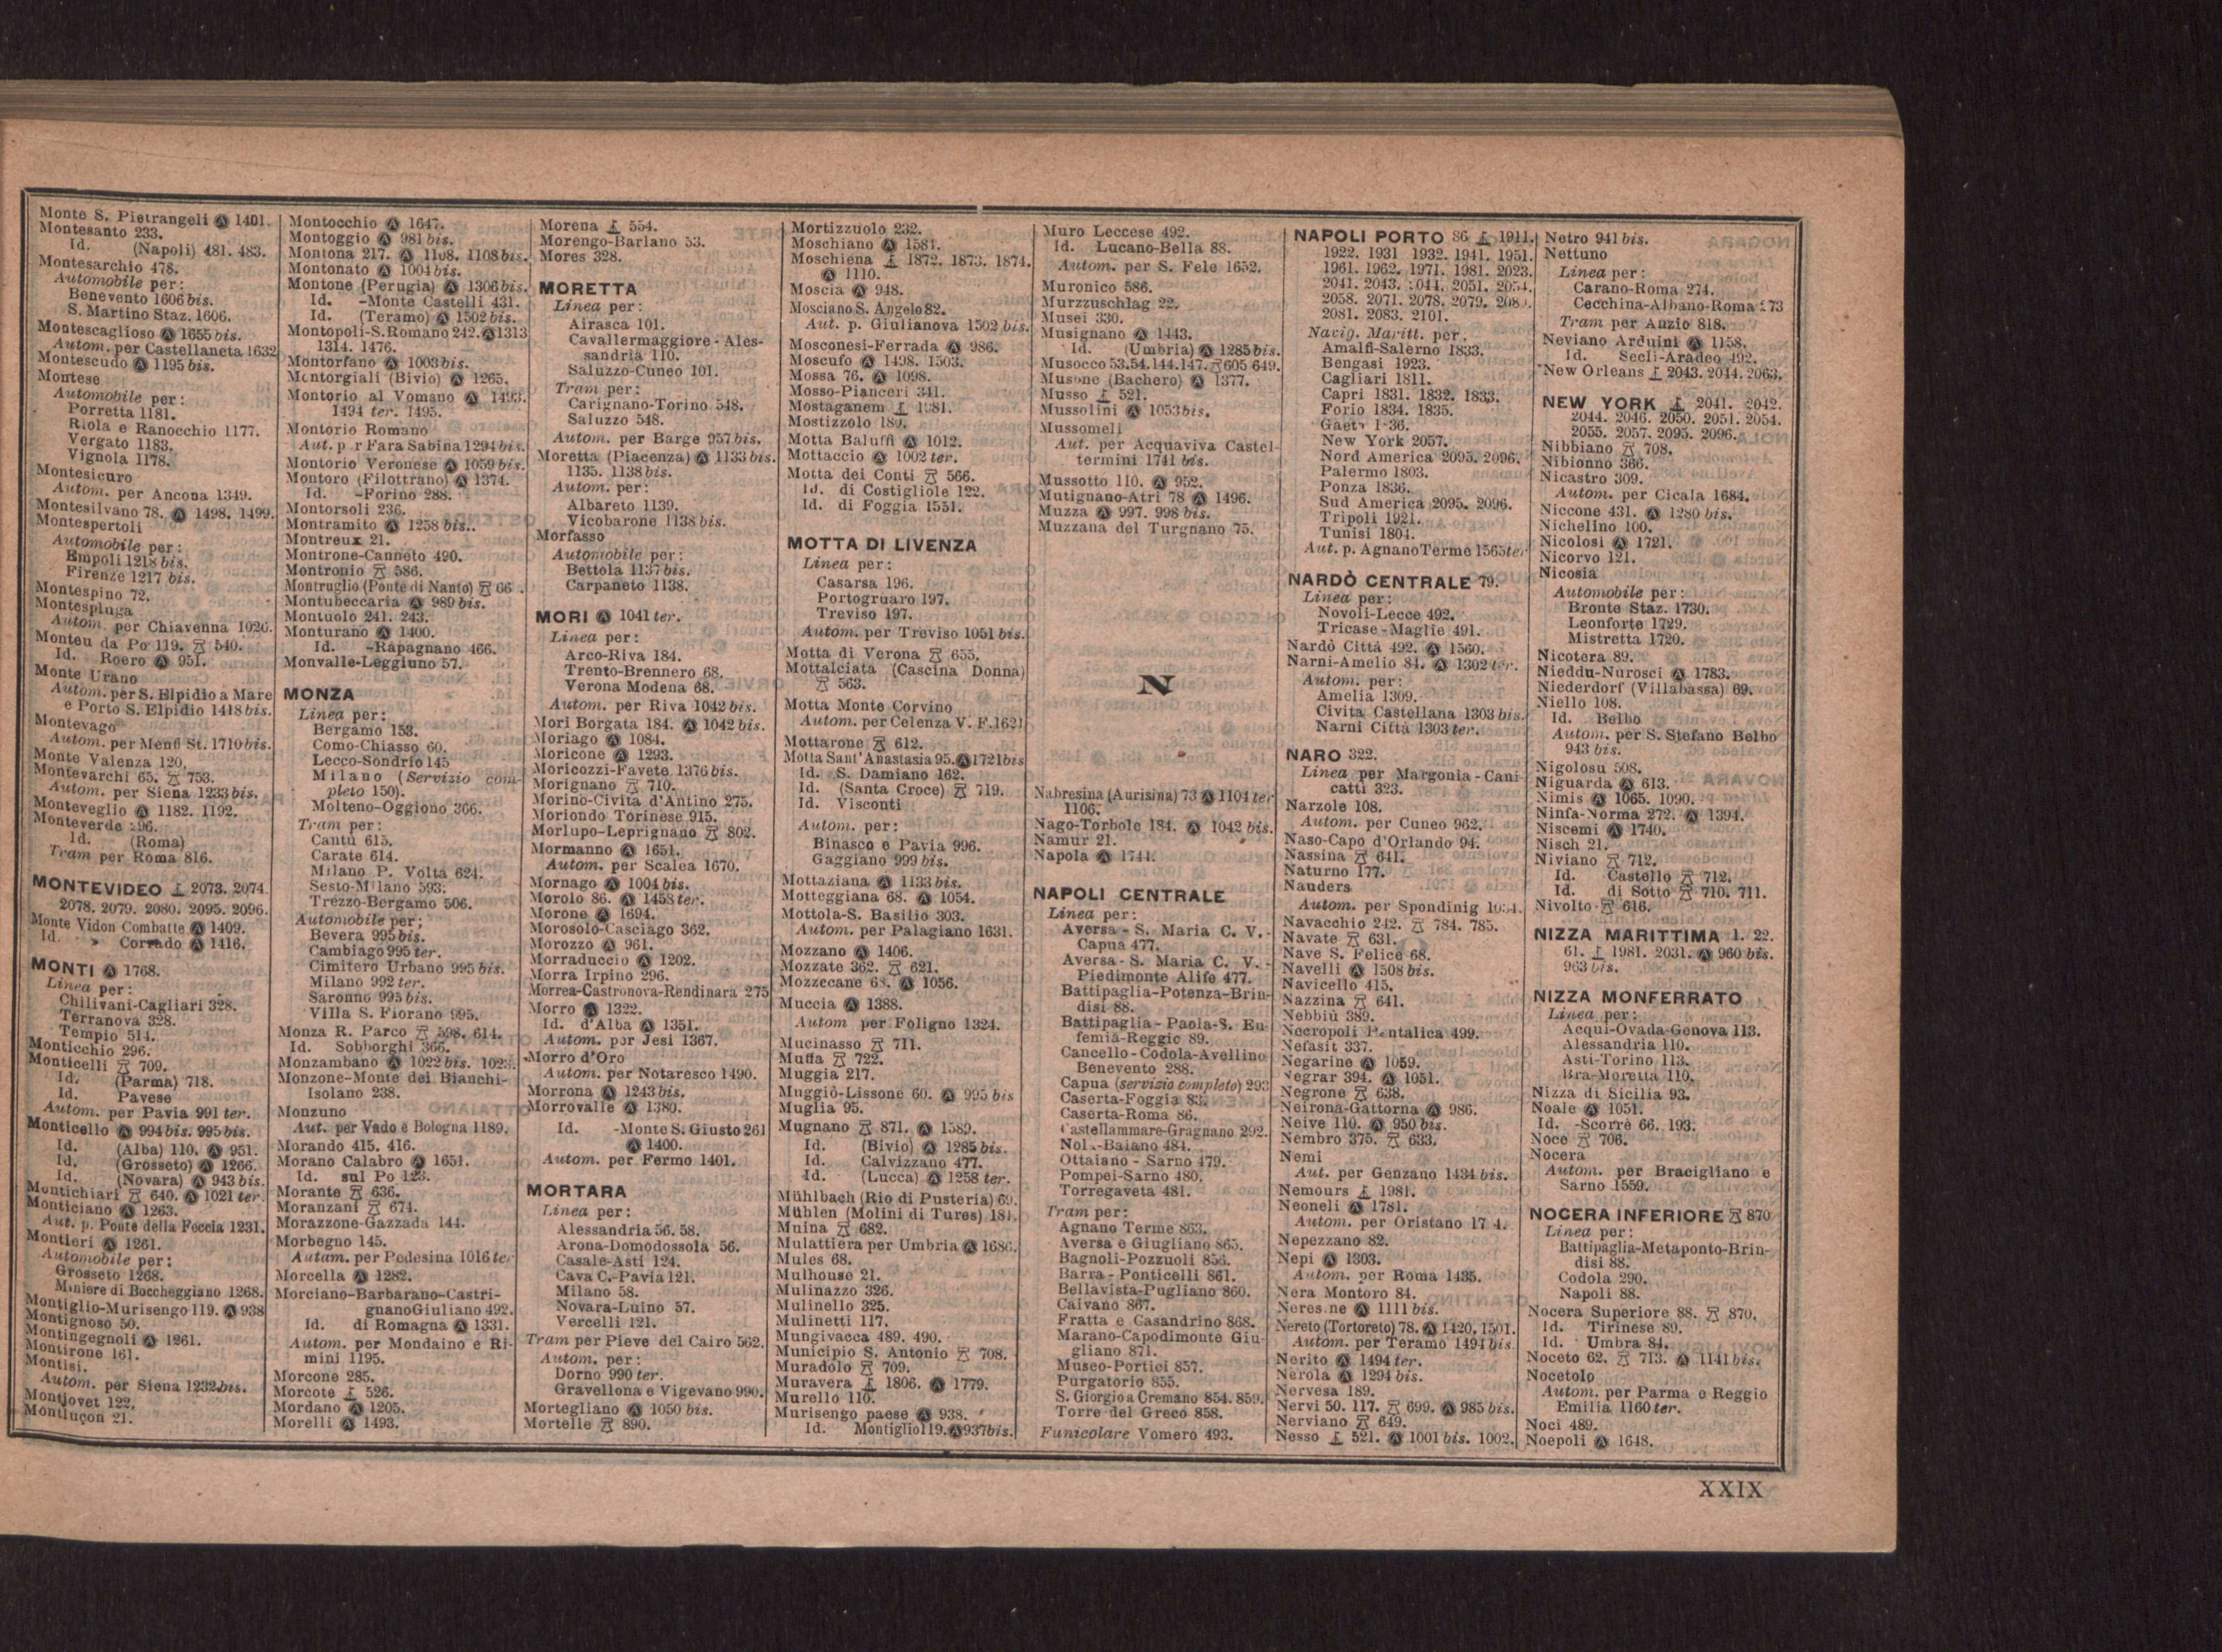 Monte S. Pietrangeli Ⓐ 1401.
Montesanto 233.
Id. (Napoli) 481. 483.
Montesarchio 478.
Automobile per:
Benevento 1606 bis.
S. Martino Staz. 1606.
Montescaglioso Ⓐ 1655 bis.
Autom. per Castellaneta 1632
Montescudo Ⓐ 1195 bis.
Montese
Automobile per:
Porretta 1181.
Riola e Ranocchio 1177.
Vergato 1183.
Vignola 1178.
Montesicuro
Autom. per Ancona 1349.
Montesilvano 78. Ⓐ 1498. 1499.
Montespertoli
Automobile per:
Empoli 1218 bis.
Firenze 1217 bis.
Montespino 72.
Montespluga
Autom. per Chiavenna 1026.
Monteu da Po 119. 540.
Id. Roero Ⓐ 951.
Monte Urano
Autom. per S. Elpidio a Mare
e Porto S. Elpidio 1418 bis.
Montevago
Autom. per Menfi St. 1710 bis.
Monte Valenza 120.
Montevarchi 65. 753.
Autom. per Siena 1233 bis.
Monteveglio Ⓐ 1182. 1192.
Monteverde 296.
Id. (Roma)
Tram per Roma 816.
MONTEVIDEO 2073. 2074
2078. 2079. 2080. 2095. 2096.
Monte Vidon Combatte Ⓐ 1409.
Id. » Corrado Ⓐ 1416.
MONTI Ⓐ 1768.
Linea per:
Chilivani-Cagliari 328.
Terranova 328.
Tempio 514.
Monticchio 296.
Monticelli 709.
Id. (Parma) 718.
Id. Pavese
Autom. per Pavia 991 ter.
Monticello Ⓐ 994 bis. 995 bis.
Id. (Alba) 110. Ⓐ 951.
Id. (Grosseto) Ⓐ 1266.
Id. (Novara) Ⓐ 943 bis.
Montichiari 640. Ⓐ 1021 ter.
Monticiano Ⓐ 1263.
Aut. p. Ponte della Feccia 1231.
Montieri Ⓐ 1261.
Automobile per:
Grosseto 1268.
Miniere di Boccheggiano 1268.
Montiglio-Murisengo 119. Ⓐ 938
Montignoso 50.
Montingegnoli Ⓐ 1261.
Montirone 161.
Montisi.
Autom. per Siena 1232 bis.
Montjovet 122.
Montluçon 21.
Montocchio Ⓐ 1647.
Montoggio Ⓐ 981 bis.
Montona 217. Ⓐ 1108. 1108 bis.
Montonato Ⓐ 1004 bis.
Montone (Perugia) Ⓐ 1306 bis.
Id. -Monte Castelli 431.
Id. (Teramo) Ⓐ 1502 bis.
Montopoli-S. Romano 242. Ⓐ 1313
1314. 1476.
Montorfano Ⓐ 1003 bis.
Montorgiali (Bivio) Ⓐ 1265.
Montorio al Vomano Ⓐ 1493.
1494 ter. 1495.
Montorio Romano
Aut. p r Fara Sabina 1294 bis.
Montorio Veronese Ⓐ 1059 bis.
Montoro (Filottrano) Ⓐ 1374.
Id. -Forino 288.
Montorsoli 236.
Montramito Ⓐ 1258 bis.
Montreux 21.
Montrone-Canneto 490.
Montronio 586.
Montruglio (Ponte di Nanto) 66 .
Montubeccaria Ⓐ 989 bis.
Montuolo 241. 243.
Monturano Ⓐ 1400.
Id. -Rapagnano 466.
Monvalle-Leggiuno 57.
MONZA
Linea per:
Bergamo 153.
Como-Chiasso 60.
Lecco-Sondrio 145
Milano (Servizio com-
pleto 150).
Molteno-Oggiono 366.
Tram per:
Cantù 615.
Carate 614.
Milano P. Volta 624.
Sesto-Milano 593.
Trezzo-Bergamo 506.
Automobile per;
Bevera 995 bis.
Cambiago 995 ter.
Cimitero Urbano 995 bis.
Milano 992 ter.
Saronno 995 bis.
Villa S. Fiorano 995.
Monza R. Parco 598. 614.
Id. Sobborghi 366.
Monzambano Ⓐ 1022 bis. 1023.
Monzone-Monte dei Bianchi-
Isolano 238.
Monzuno
Aut. per Vado e Bologna 1189.
Morando 415. 416.
Morano Calabro Ⓐ 1651.
Id. sul Po 123.
Morante 636.
Moranzani 674.
Morazzone-Gazzada 144.
Morbegno 145.
Autam. per Pedesina 1016 ter
Morcella Ⓐ 1282.
Morciano-Barbarano-Castri-
gnano Giuliano 492.
Id. di Romagna Ⓐ 1331.
Autom. per Mondaino e Ri-
mini 1195.
Morcone 285.
Morcote 526.
Mordano Ⓐ 1205.
Morelli Ⓐ 1493.
Morena 554.
Morengo-Barlano 53.
Mores 328.
MORETTA
Linea per:
Airasca 101.
Cavallermaggiore-Ales-
sandria 110.
Saluzzo-Cuneo 101.
Tram per:
Carignano-Torino 548.
Saluzzo 548.
Autom. per Barge 957 bis.
Moretta (Piacenza) Ⓐ 1133 bis.
1135. 1138 bis.
Autom. per:
Albareto 1139.
Vicobarone 1138 bis.
Morfasso
Automobile per:
Bettola 1137 bis.
Carpaneto 1138.
MORI Ⓐ 1041 ter.
Linea per:
Arco-Riva 184.
Trento-Brennero 68.
Verona Modena 68.
Autom. per Riva 1042 bis.
Mori Borgata 184. Ⓐ 1042 bis.
Moriago Ⓐ 1084.
Moricone Ⓐ 1293.
Moricozzi-Favete 1376 bis.
Morignano 710.
Morino-Civita d'Antino 275.
Moriondo Torinese 915.
Morlupo-Leprignano 802.
Mormanno Ⓐ 1651.
Autom. per Scalea 1670.
Mornago Ⓐ 1004 bis.
Morolo 86. Ⓐ 1458 ter.
Morone Ⓐ 1694.
Morosolo-Casciago 362.
Morozzo Ⓐ 961.
Morraduccio Ⓐ 1202.
Morra Irpino 296.
Morrea-Castronova-Rendinara 275
Morro Ⓐ 1322.
Id. d'Alba Ⓐ 1351.
Autom. per Jesi 1367.
Morro d'Oro
Autom. per Notaresco 1490.
Morrona Ⓐ 1243 bis.
Morrovalle Ⓐ 1380.
Id. -Monte S. Giusto 261
Ⓐ 1400.
Autom. per Fermo 1401.
MORTARA
Linea per:
Alessandria 56. 58.
Arona-Domodossola 56.
Casale-Asti 124.
Cava C.-Pavia 121.
Milano 58.
Novara-Luino 57.
Vercelli 121.
Tram per Pieve del Cairo 562.
Autom. per:
Dorno 990 ter.
Gravellona e Vigevano 990.
Mortegliano Ⓐ 1050 bis.
Mortelle 890.
Mortizzuolo 232.
Moschiano Ⓐ 1581.
Moschiena 1872. 1873. 1874.
Ⓐ 1110.
Moscia Ⓐ 948.
Mosciano S. Angelo 82.
Aut. p. Giulianova 1502 bis.
Mosconesi-Ferrada Ⓐ 986.
Moscufo Ⓐ 1498. 1503.
Mossa 76. Ⓐ 1098.
Mosso-Pianceri 341.
Mostaganem 1981.
Mostizzolo 189.
Motta Baluffi Ⓐ 1012.
Mottaccio Ⓐ 1002 ter.
Motta dei Conti 566.
Id. di Costigliole 122.
Id. di Foggia 1551.
MOTTA DI LIVENZA
Linea per:
Casarsa 196.
Portogruaro 197.
Treviso 197.
Autom. per Treviso 1051 bis.
Motta di Verona 655.
Mottalciata (Cascina Donna)
563.
Motta Monte Corvino
Autom. per Celenza V. F. 1621
Mottarone 612.
Motta Sant'Anastasia 95. Ⓐ 1721 bis
Id. S. Damiano 162.
Id. (Santa Croce) 719.
Id. Visconti
Autom. per:
Binasco e Pavia 996.
Gaggiano 999 bis.
Mottaziana Ⓐ 1133 bis.
Motteggiana 68. Ⓐ 1054.
Mottola-S. Basilio 303.
Autom. per Palagiano 1631.
Mozzano Ⓐ 1406.
Mozzate 362. 621.
Mozzecane 68. Ⓐ 1056.
Muccia Ⓐ 1388.
Autom per Foligno 1324.
Mucinasso 711.
Muffa 722.
Muggia 217.
Muggiò-Lissone 60. Ⓐ 995 bis
Muglia 95.
Mugnano 871. Ⓐ 1589.
Id. (Bivio) Ⓐ 1285 bis.
Id. Calvizzano 477.
Id. (Lucca) Ⓐ 1258 ter.
Mühlbach (Rio di Pusteria) 69.
Mühlen (Molini di Tures) 181.
Muina 682.
Mulattiera per Umbria Ⓐ 1686.
Mules 68.
Mulhouse 21.
Mulinazzo 326.
Mulinello 325.
Mulinetti 117.
Mungivacca 489. 490.
Municipio S. Antonio 708.
Muradolo 709.
Muravera 1806. Ⓐ 1779.
Murello 110.
Murisengo paese Ⓐ 938.
Id. Montiglio 119. Ⓐ 937 bis.
Muro Leccese 492.
Id. Lucano-Bella 88.
Autom. per S. Fele 1652.
Muronico 586.
Murzzuschlag 22.
Musei 330.
Musignano Ⓐ 1443.
Id. (Umbria) Ⓐ 1285 bis.
Musocco 53. 54. 144. 147. 605 649.
Musone (Bachero) Ⓐ 1377.
Musso 521.
Mussolini Ⓐ 1053 bis.
Mussomeli
Aut. per Acquaviva Castel-
termini 1741 bis.
Mussotto 110. Ⓐ 952.
Mutignano-Atri 78 Ⓐ 1496.
Muzza Ⓐ 997. 998 bis.
Muzzana del Turgnano 75.
N
Nabresina (Aurisina) 73 Ⓐ 1104 ter
1106.
Nago-Torbole 184. Ⓐ 1042 bis.
Namur 21.
Napola Ⓐ 1744.
NAPOLI CENTRALE
Linea per:
Aversa - S. Maria C. V. -
Capua 477.
Aversa - S. Maria C. V. -
Piedimonte Alife 477.
Battipaglia-Potenza-Brin-
disi 88.
Battipaglia - Paola-S. Eu-
femia-Reggio 89.
Cancello-Codola-Avellino
Benevento 288.
Capua (servizio completo) 293
Caserta-Foggia 83.
Caserta-Roma 86.
Castellammare-Gragnano 292.
Nola-Baiano 484.
Ottaiano - Sarno 479.
Pompei-Sarno 480.
Torregaveta 481.
Tram per:
Agnano Terme 863.
Aversa e Giugliano 865.
Bagnoli-Pozzuoli 856.
Barra - Ponticelli 861.
Bellavista-Pugliano 860.
Caivano 867.
Fratta e Casandrino 868.
Marano-Capodimonte Giu-
gliano 871.
Museo-Portici 857.
Purgatorio 855.
S. Giorgio a Cremano 854. 859.
Torre del Greco 858.
Funicolare Vomero 493.
NAPOLI PORTO 86 1911.
1922. 1931 1932. 1941. 1951.
1961. 1962. 1971. 1981. 2023.
2041. 2043. 2044. 2051. 2054.
2058. 2071. 2078. 2079. 2080.
2081. 2083. 2101.
Navig. Maritt. per.
Amalfi-Salerno 1833.
Bengasi 1923.
Cagliari 1811.
Capri 1831. 1832. 1833.
Forio 1834. 1835.
Gaeta 1836.
New York 2057.
Nord America 2095. 2096.
Palermo 1803.
Ponza 1836.
Sud America 2095. 2096.
Tripoli 1921.
Tunisi 1804.
Aut. p. Agnano Terme 1565 ter
NARDÒ CENTRALE 79.
Linea per:
Novoli-Lecce 492.
Tricase-Maglie 491.
Nardò Città 492. Ⓐ 1560.
Narni-Amelio 84. Ⓐ 1302 ter.
Autom. per:
Amelia 1309.
Civita Castellana 1303 bis.
Narni Città 1303 ter.
NARO 322.
Linea per Margonia-Cani-
cattì 323.
Narzole 108.
Autom. per Cuneo 962.
Naso-Capo d'Orlando 94.
Nassina 641.
Naturno 177.
Nauders
Autom. per Spondinig 1034.
Navacchio 242. 784. 785.
Navate 631.
Nave S. Felice 68.
Navelli Ⓐ 1508 bis.
Navicello 415.
Nazzina 641.
Nebbiù 389.
Necropoli Pantalica 499.
Nefasit 337.
Negarine Ⓐ 1059.
Negrar 394. Ⓐ 1051.
Negrone 638.
Neirona-Gattorna Ⓐ 986.
Neive 110. Ⓐ 950 bis.
Nembro 375. 633.
Nemi
Aut. per Genzano 1434 bis.
Nemours 1981.
Neoneli Ⓐ 1781.
Autom. per Oristano 17 4.
Nepezzano 82.
Nepi Ⓐ 1303.
Autom. per Roma 1435.
Nera Montoro 84.
Neres.ne Ⓐ 1111 bis.
Nereto (Tortoreto) 78. Ⓐ 1420. 1501.
Autom. per Teramo 1494 bis
Nerito Ⓐ 1494 ter.
Nerola Ⓐ 1294 bis.
Nervesa 189.
Nervi 50. 117. 699. Ⓐ 985 bis.
Nerviano 649.
Nesso 521. Ⓐ 1001 bis. 1002.
Netro 941 bis.
Nettuno
Linea per:
Carano-Roma 274.
Cecchina-Albano-Roma 273
Tram per Anzio 818.
Neviano Arduini Ⓐ 1158.
Id. Secli-Aradeo 492.
New Orleans 2043. 2044. 2063.
NEW YORK 2041. 2042.
2044. 2046. 2050. 2051. 2054.
2055. 2057. 2095. 2096.
Nibbiano 708.
Nibionno 366.
Nicastro 309.
Autom. per Cicala 1684.
Niccone 431. Ⓐ 1280 bis.
Nichelino 100.
Nicolosi Ⓐ 1721.
Nicorvo 121.
Nicosia
Automobile per:
Bronte Staz. 1730.
Leonforte 1729.
Mistretta 1720.
Nicotera 89.
Nieddu-Nurosci Ⓐ 1783.
Niederdorf (Villabassa) 69.
Niello 108.
Id. Belbo
Autom. per S. Stefano Belbo
943 bis.
Nigolosu 508.
Niguarda Ⓐ 613.
Nimis Ⓐ 1065. 1090.
Ninfa-Norma 272. Ⓐ 1394.
Niscemi Ⓐ 1740.
Nisch 21.
Niviano 712.
Id. Castello 712.
Id. di Sotto 710. 711.
Nivolto 616.
NIZZA MARITTIMA 1. 22.
61. 1981. 2031. Ⓐ 960 bis.
963 bis.
NIZZA MONFERRATO
Linea per:
Acqui-Ovada-Genova 113.
Alessandria 110.
Asti-Torino 113.
Bra-Moretta 110.
Nizza di Sicilia 93.
Noale Ⓐ 1051.
Id. -Scorrè 66. 193.
Noce 706.
Nocera
Autom. per Bracigliano e
Sarno 1559.
NOCERA INFERIORE 870
Linea per:
Battipaglia-Metaponto-Brin-
disi 88.
Codola 290.
Napoli 88.
Nocera Superiore 88. 870.
Id. Tirinese 89.
Id. Umbra 84.
Noceto 62. 713. Ⓐ 1141 bis.
Nocetolo
Autom. per Parma e Reggio
Emilia 1160 ter.
Noci 489.
Noepoli Ⓐ 1648.
XXIX